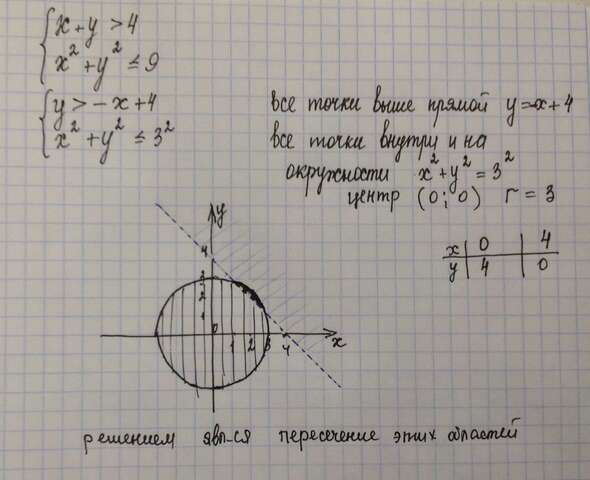 x + y > 4
x² + y² ≤ 9
y > -x + 4
x² + y² ≤ 3²
все точки выше прямой y=-x+4
все точки внутри и на
окружности x² + y² = 3²
центр (0; 0) r = 3
x 0 4
y 4 0
y
4
3
2
1
0
1 2 3 4
x
решением явл-ся пересечение этих областей